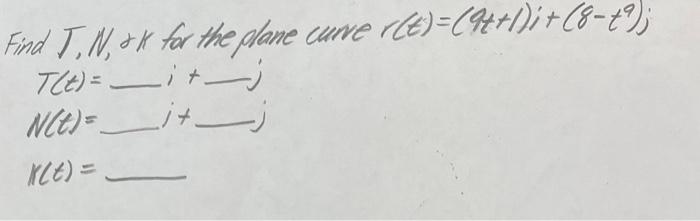 Find T, N, & K for the plane curve r(t)=(9t+1)i+(8-t⁹)j
T(t)= ___i + ___j
N(t)= ___i + ___j
K(t) = ___